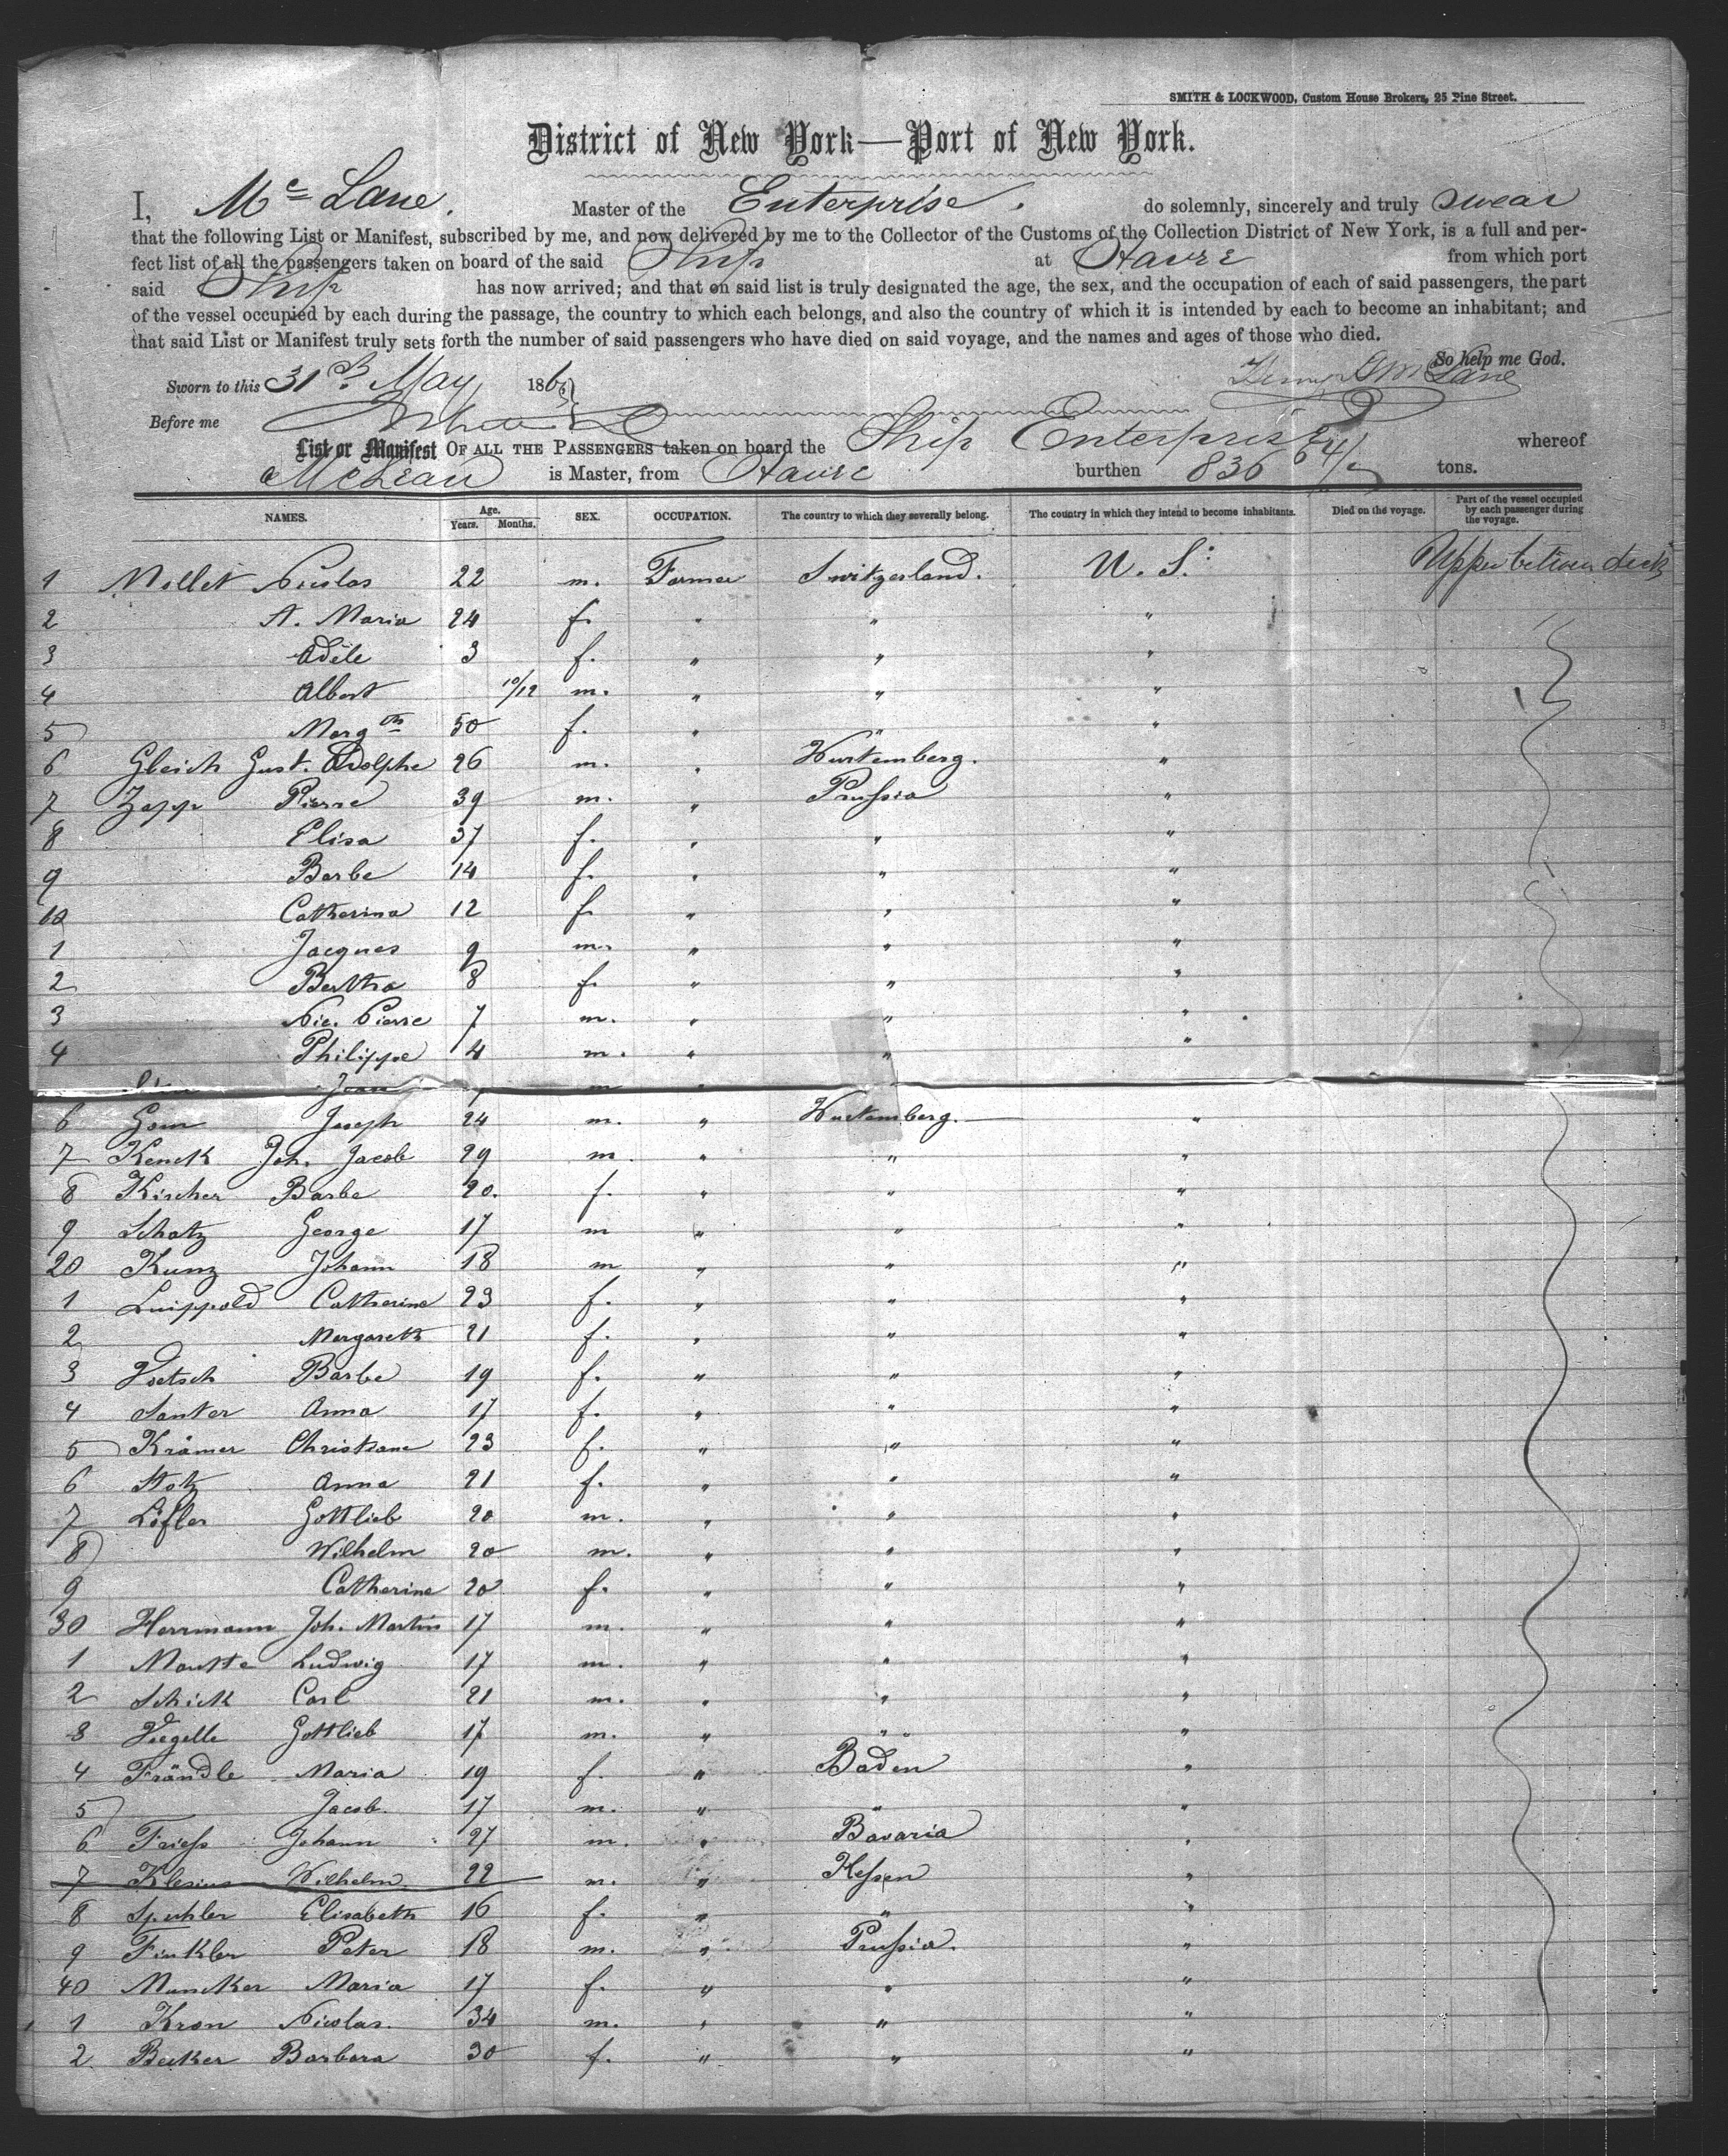 SMITH & LOCKWOOD, Custom House Brokers, 25 Pine Street.
District of New York—Port of New York.
I, Mc Lane. Master of the Enterprise. do solemnly, sincerely and truly swear
that the following List or Manifest, subscribed by me, and now delivered by me to the Collector of the Customs of the Collection District of New York, is a full and per-
fect list of all the passengers taken on board of the said Ship at Havre from which port
said Ship has now arrived; and that on said list is truly designated the age, the sex, and the occupation of each of said passengers, the part
of the vessel occupied by each during the passage, the country to which each belongs, and also the country of which it is intended by each to become an inhabitant; and
that said List or Manifest truly sets forth the number of said passengers who have died on said voyage, and the names and ages of those who died.
So help me God.
Sworn to this 31st May 186
Lane
Before me
List or Manifest OF ALL THE PASSENGERS taken on board the Ship Enterprise whereof
McLean is Master, from Havre burthen 836 64/ tons.
NAMES. Age. Years. Months. SEX. OCCUPATION. The country to which they severally belong. The country in which they intend to become inhabitants. Died on the voyage. Part of the vessel occupied by each passenger during the voyage.
1 Mollet Nicolas 22 m. Farmer Switzerland. U. S. Upper between deck
2 A. Maria 24 f. " " "
3 Adèle 3 f. " " "
4 Albert 10/12 m. " " "
5 Marg th 50 f. " " "
6 Gleich Gust. Adolphe 26 m. " Wurtemberg. "
7 Zapp Pierre 39 m. " Prussia "
8 Elisa 37 f. " " "
9 Barbe 14 f. " " "
10 Catherina 12 f. " " "
1 Jacques 9 m. " " "
2 Bertha 8 f. " " "
3 Nic. Pierre 7 m. " " "
4 Philippe 4 m. " " "
Jean m "
6 Gom Joseph 24 m. " Wurtemberg. "
7 Kenck Joh. Jacob 29 m " " "
8 Kircher Barbe 20. f. " " "
9 Schatz George 17 m " " "
20 Kunz Johann 18 m " " "
1 Luippold Catherine 23 f. " " "
2 Margareth 21 f. " " "
3 Voetsch Barbe 19 f. " " "
4 Santer Anna 17 f. " " "
5 Krämer Christiane 23 f. " " "
6 Hotz Anna 21 f. " " "
7 Löfler Gottlieb 20 m. " " "
8 Wilhelm 20 m. " " "
9 Catherine 20 f. " " "
30 Herrmann Joh. Martin 17 m. " " "
1 Moutte Ludwig 17 m. " " "
2 Schick Carl 21 m. " " "
3 Vögelle Gottlieb 17 m. " " "
4 Frändle Maria 19 f. " Baden "
5 Jacob. 17 m. " " "
6 Friess Johann 27 m. " Bavaria "
7 Klesius Wilhelm. 22 m. " Hessen "
8 Spuhler Elisabeth 16 f. " " "
9 Finkler Peter 18 m. " Prussia. "
40 Muncker Maria 17 f. " " "
1 Kron Nicolas. 34 m. " " "
2 Becker Barbara 30 f. " " "